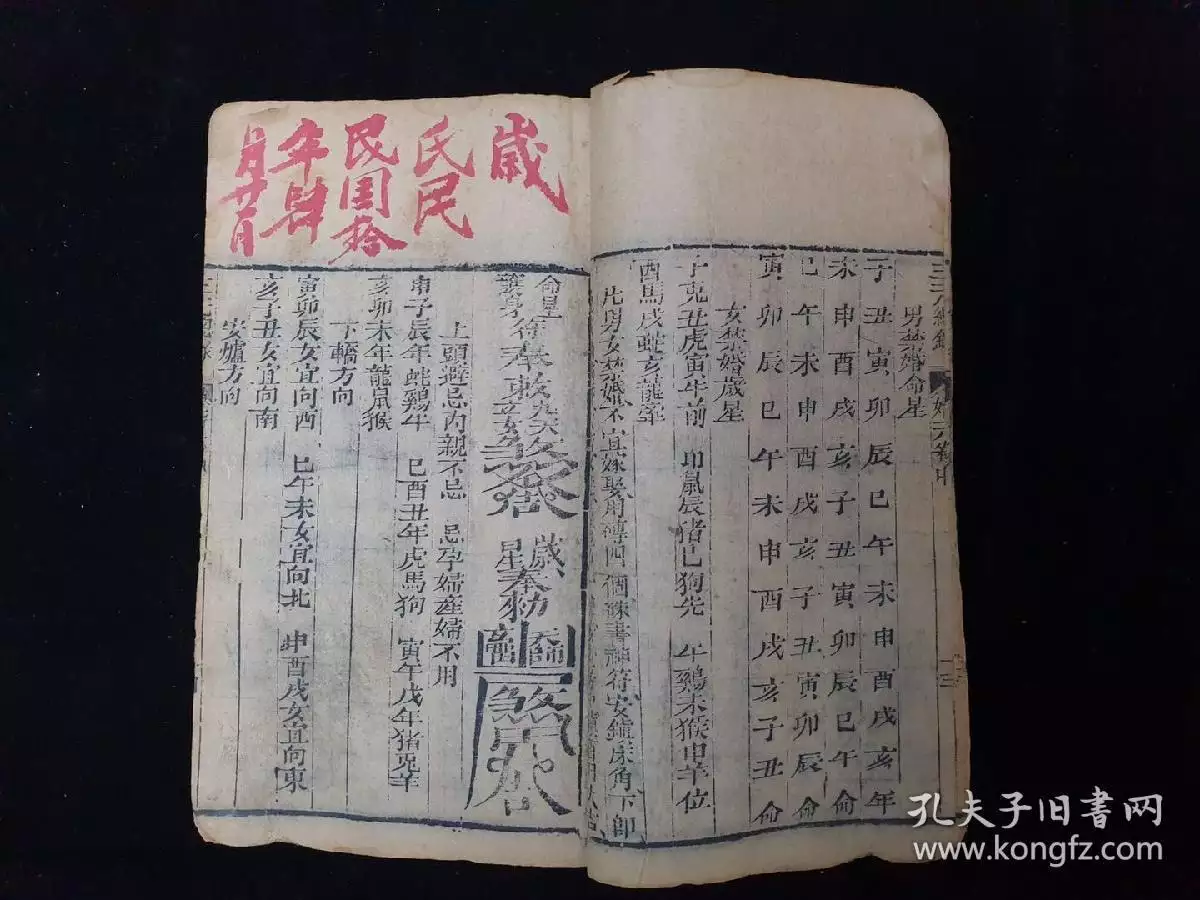 男禁婚命星
子丑寅卯辰巳午未申酉戌亥年
未申酉戌亥子丑寅卯辰巳午命
巳午未申酉戌亥子丑寅卯辰命
寅卯辰巳午未申酉戌亥子丑命
女禁婚歲星
子兎丑虎寅牛前 卯鼠辰猪巳狗先 午鷄未猴申羊位
酉馬戌蛇亥龍牽
此男女禁婚不宜嫁娶用 四個硃書神符安鎮床角下即
歲
氏民
民国拾
年肆
月廿
命星
奉敕
歲星奉勅
上頭避忌内親不忌 忌孕婦産婦不用
申子辰年蛇鷄牛 巳酉丑年虎馬狗 寅午戌年猪兎羊
亥卯未年龍鼠猴
下轎方向
寅卯辰女宜向西 巳午未女宜向北 申酉戌女宜向東
亥子丑女宜向南
安爐方向
孔夫子旧書网
www.kongfz.com